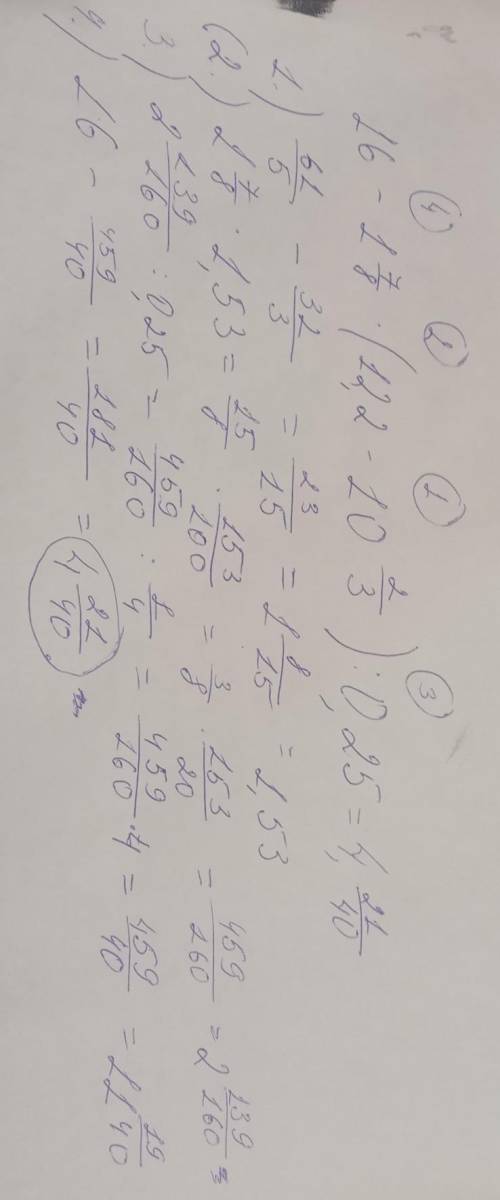 ④ ② ① ③
16 - 1 7/8 · (12,2 - 10 1/3) : 0,25 = 4 21/40
1.) 61/5 - 31/3 = 23/15 = 1 8/15 = 1,53
(2.) 1 7/8 · 1,53 = 15/8 · 153/100 = 3/8 · 153/20 = 459/160 = 2 139/160
3.) 2 139/160 : 0,25 = 459/160 : 1/4 = 459/160 · 4 = 459/40 = 11 19/40
4.) 16 - 459/40 = 181/40 = 4 21/40